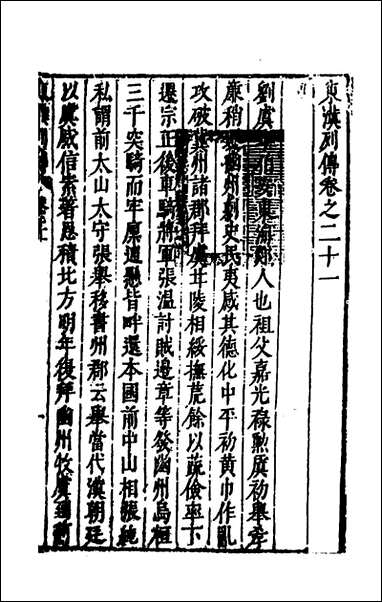 東漢列傳卷之二十一
劉虞字伯安東海郯人也祖父嘉光祿勲虞初舉孝
廉稍遷幽州刺史民夷感其德化中平初黄巾作亂
攻破冀州諸郡拜虞甘陵相綏撫荒餘以蔬儉率下
遷宗正後車騎將軍張温討賊邊章等發幽州烏桓
三千突騎而牢廪逋懸皆畔還本國前中山相張純
私謂前太山太守張舉移書州郡云舉當代漢朝廷
以虞威信素著恩積北方明年復拜幽州牧虞到